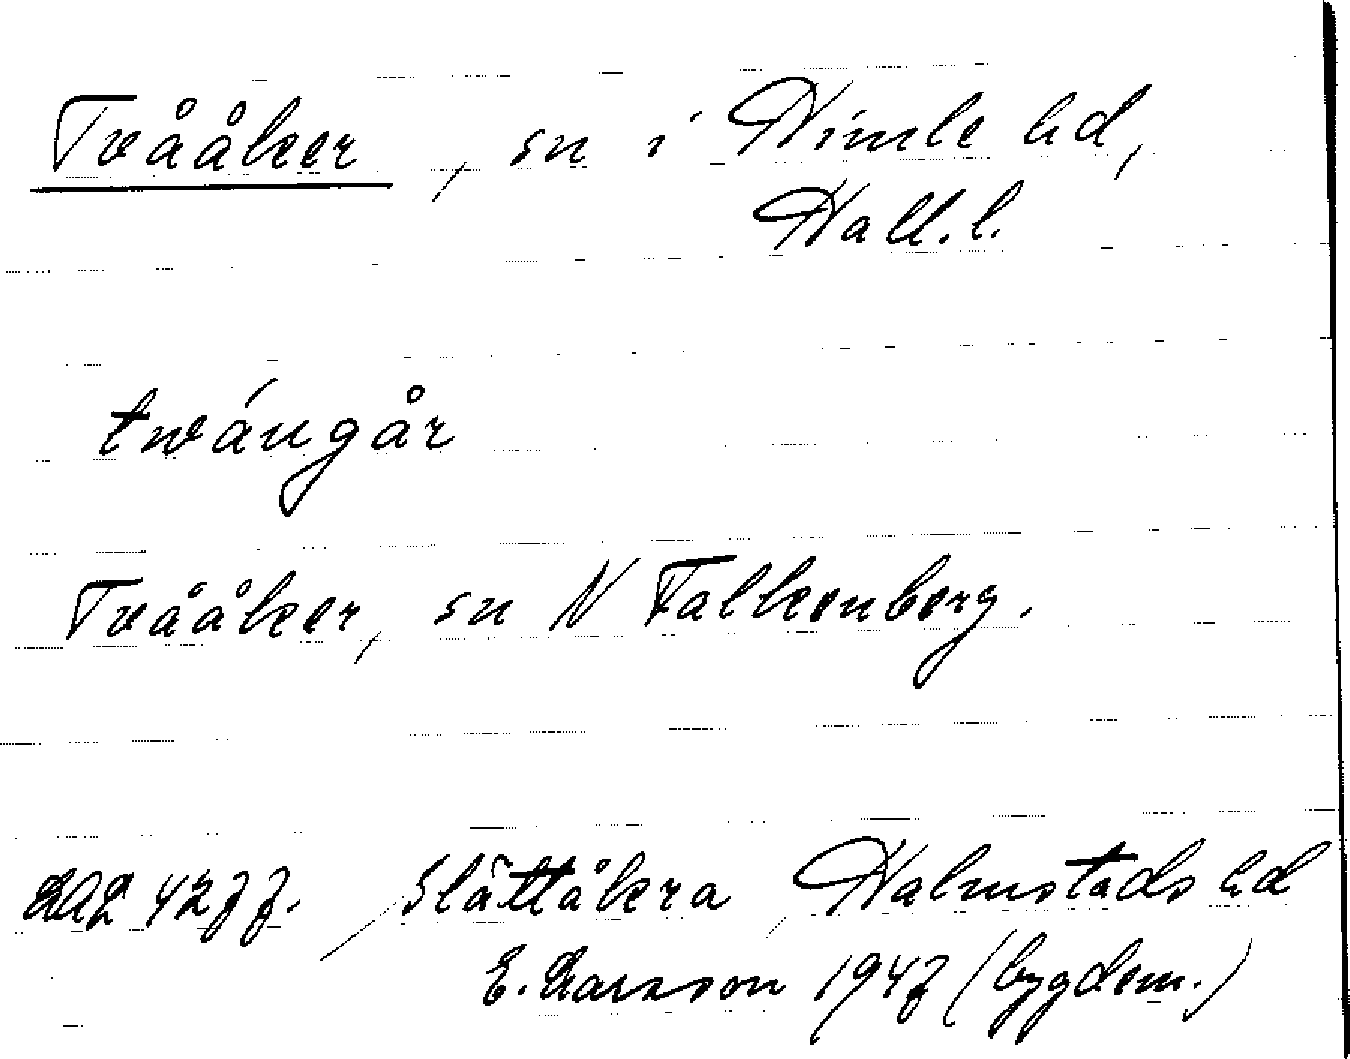 Tvååker, sn i Himle hd,
Hall.l.
twángår
Tvååker, sn N Falkenberg.
Slättåkra Halmstads hd
E. Larsson 1947 (bygdem.)